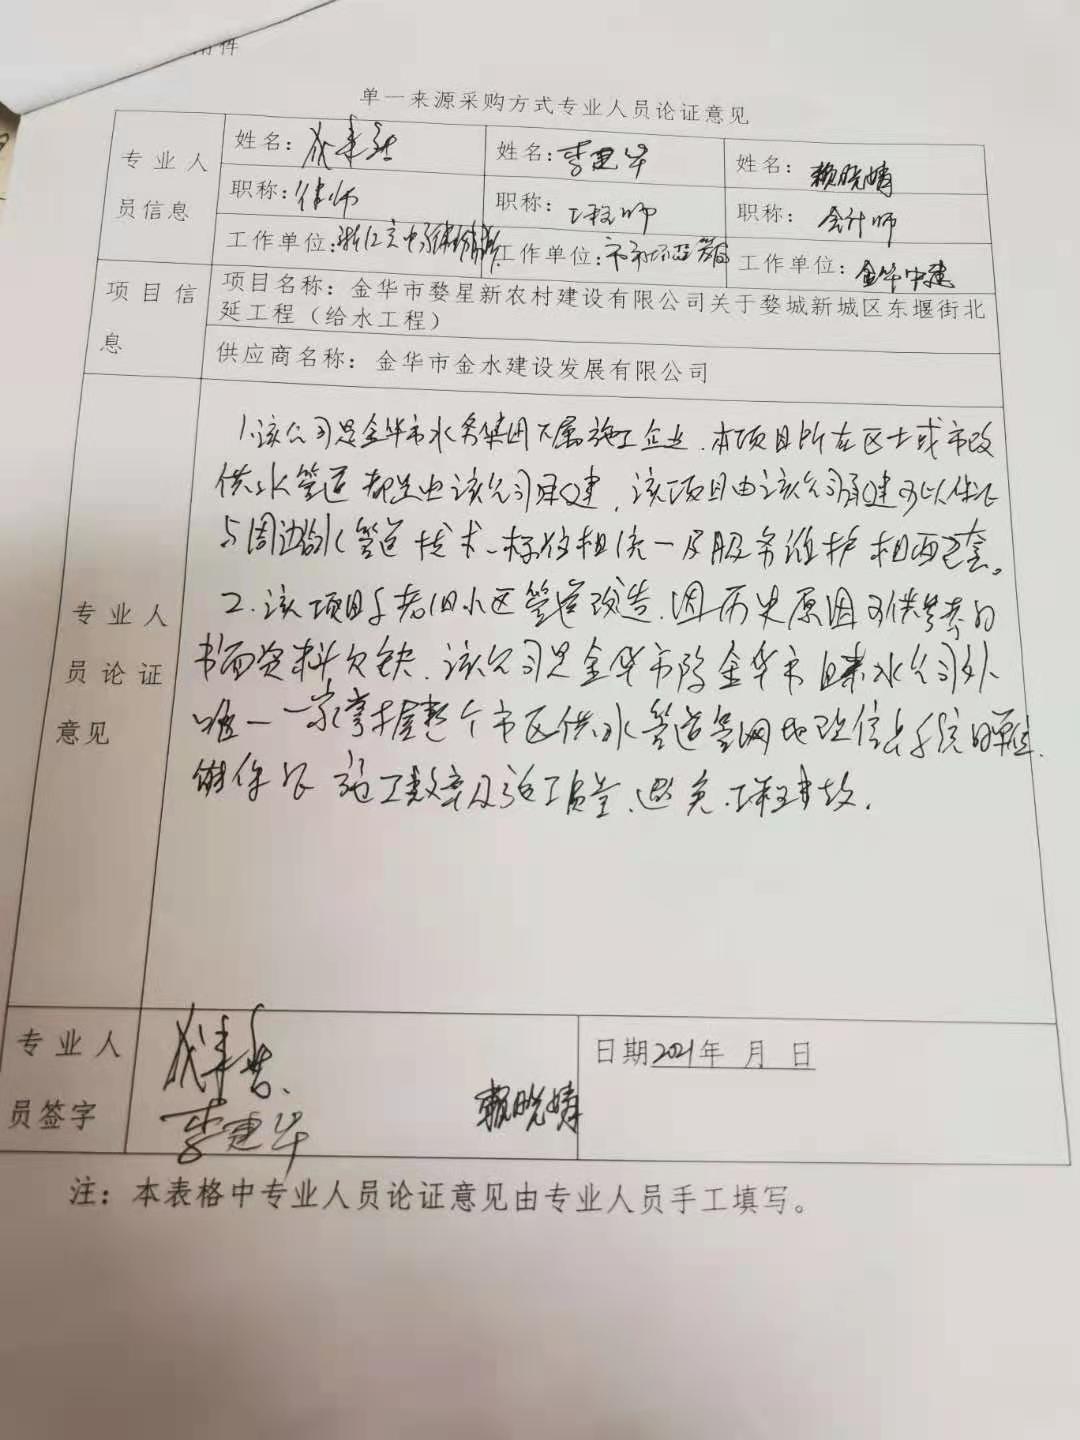 附件
单一来源采购方式专业人员论证意见
专业人员信息
姓名：
姓名：李建华
姓名：赖晓婧
职称：律师
职称：工程师
职称：会计师
工作单位：浙江
工作单位：
工作单位：金华中建
项目信息
项目名称：金华市婺星新农村建设有限公司关于婺城新城区东堰街北
延工程（给水工程）
供应商名称：金华市金水建设发展有限公司
专业人员论证意见
1.该公司是金华市水务集团下属施工企业，本项目所在区土或市政
供水管道都是由该公司承建，该项目由该公司承建可以保证
与周边供水管道技术、标准相统一及服务维护相配套。
2.该项目涉老旧小区管道改造，因历史原因可供参考的
书面资料欠缺，该公司是金华市除金华市自来水公司外
唯一一家掌握整个市区供水管道管网地理信息系统的单位，
能保证施工效率及施工质量，避免工程事故。
专业人员签字
李建华
赖晓婧
日期2021年 月 日
注：本表格中专业人员论证意见由专业人员手工填写。